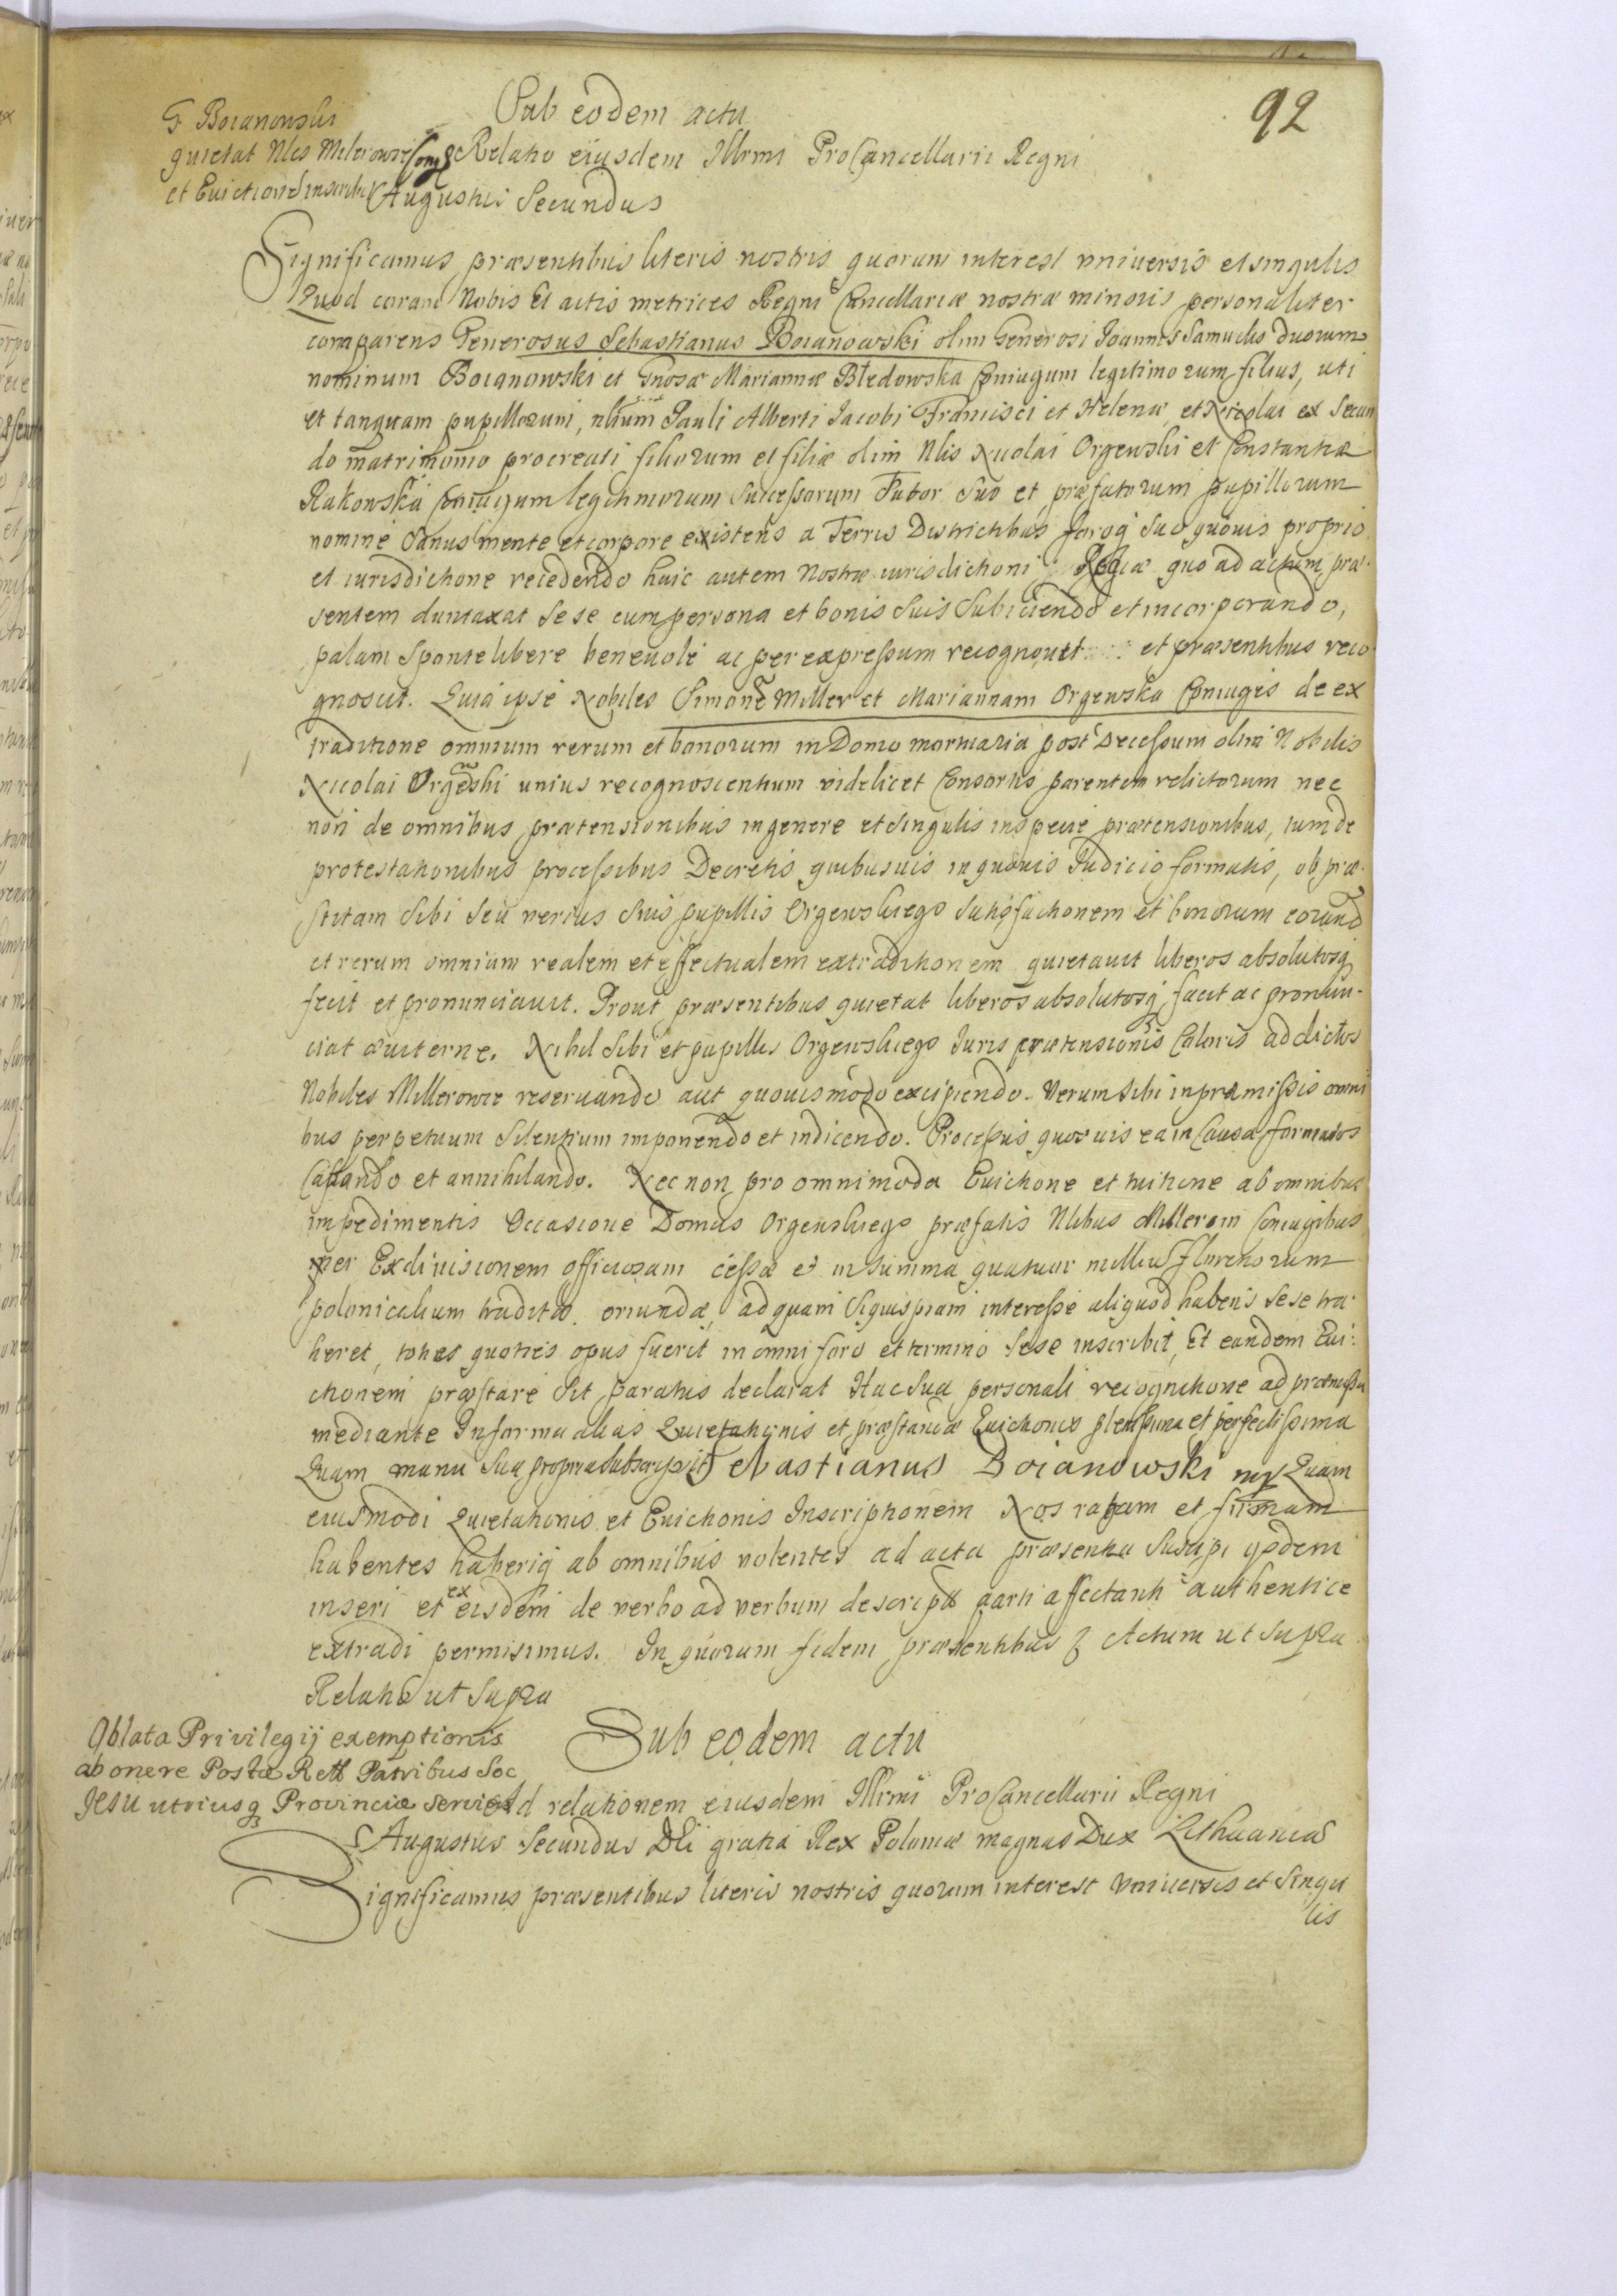 92
Sub eodem actu
G Boianowski
quietat Nles Milerowie Coniuges
et Evictione inscribit
Relatio eiusdem Illrmi ProCancellarii Regni
Augustus Secundus
Significamus præsentibus literis nostris quorum interest universis et singulis
Quod coram Nobis Et actis metrices Regni Cancellariæ nostræ minoris personaliter
comparens Generosus Sebastianus Boianowski olim Generosi Joannis Samuelis duorum
nominum Boianowski et Gnosæ Mariannæ Błedowska Coniugum legitimorum filius, uti
et tanquam pupillorum, nlium Pauli Alberti Jacobi Francisci et Helenæ et Nicolai ex Secun
do matrimonio procreati filiorum et filiæ olim Nlis Nicolai Orgewski et Constantiæ
Rakowska Coniugum legitimorum Successorum Tutor Suo et præfatorum pupillorum
nomine Sanus mente et corpore existens a Terris Districtibus foroq Suo quovis proprio
et iurisdictione recedendo huic autem Nostræ iurisdictioni Regiæ quo ad actum præ
sentem duntaxat Sese cum persona et bonis Suis Subiiciendo et incorporando,
palam Sponte libere benevole ac per expressum recognovit et præsentibus reco
gnoscit. Quia ipse Nobiles Simone Miller et Mariannam Orgewska Coniuges de ex
traditione omnium rerum et bonorum in Domo mormaria post decessum olim Nobilis
Nicolai Orgewski unius recognoscentium videlicet Consortis parentem relictorum nec
non de omnibus prætensionibus in genere et Singulis in specie prætensionibus, tum de
protestationibus processibus Decretis quibusvis in quovis Judicio formatis, ob præ
stitam Sibi Seu verius Suis pupillis Orgewskiego Satisfactionem et bonorum eorund
et rerum omnium realem et effectualem extraditionem quietavit liberos absolutosq
fecit et pronunciavit. Prout præsentibus quietat liberos absolutosq facit ac pronun-
ciat æviterne. Nihil Sibi et pupillis Orgewskiego Juris prætensionis Caloris ad dictos
Nobiles Millerowie reservando aut quovismodo excipiendo. Verum Sibi in præmissis omni
bus perpetuum Silentium imponendo et indicendo. Processus quosvis ea in Causa formatos
Cassando et annihilando. Nec non pro omnimoda Evictione et tuitione ab omnibus
impedimentis Occasione Domus Orgewskiego præfatis Nlibus Millerom Coniugibus
per Exdivisionem officiosam cessæ et in Summa quatuor millium florenorum
polonicalium traditæ oriundæ, ad quam Siquispiam interesse aliquod habens Sese tra
heret, toties quoties opus fuerit in omni foro et termino Sese inscribit, Et eandem Evi:
ctionem præstare Sit paratus declarat Hac Sua personali recognitione ad præmissa
mediante In forma alias Quietationis et præstandæ Evictionis plenissima et perfectissima
Quam manu Sua propria Subscripsit Sebastianus Boianowski mp Quam
eiusmodi Quietationis et Evictionis Inscriptionem Nos ratam et firmam
habentes haberiq ab omnibus volentes ad acta præsentia Suscipi ijsdem
inseri et ex eisdem de verbo ad verbum descripta parti affectanti authentice
extradi permisimus. In quorum fidem præsentibus Actum ut Supra
Relatio ut Supra
Oblata Privilegij exemptionis
ab onere Postæ Patribus Soc
Jesu utriusq Provinciæ
Sub eodem actu
Ad relationem eiusdem Illrmi ProCancellarii Regni
Augustus Secundus Dei gratia Rex Poloniæ magnus Dux Lithuaniæ
Significamus præsentibus literis nostris quorum interest Universis et Singu
lis